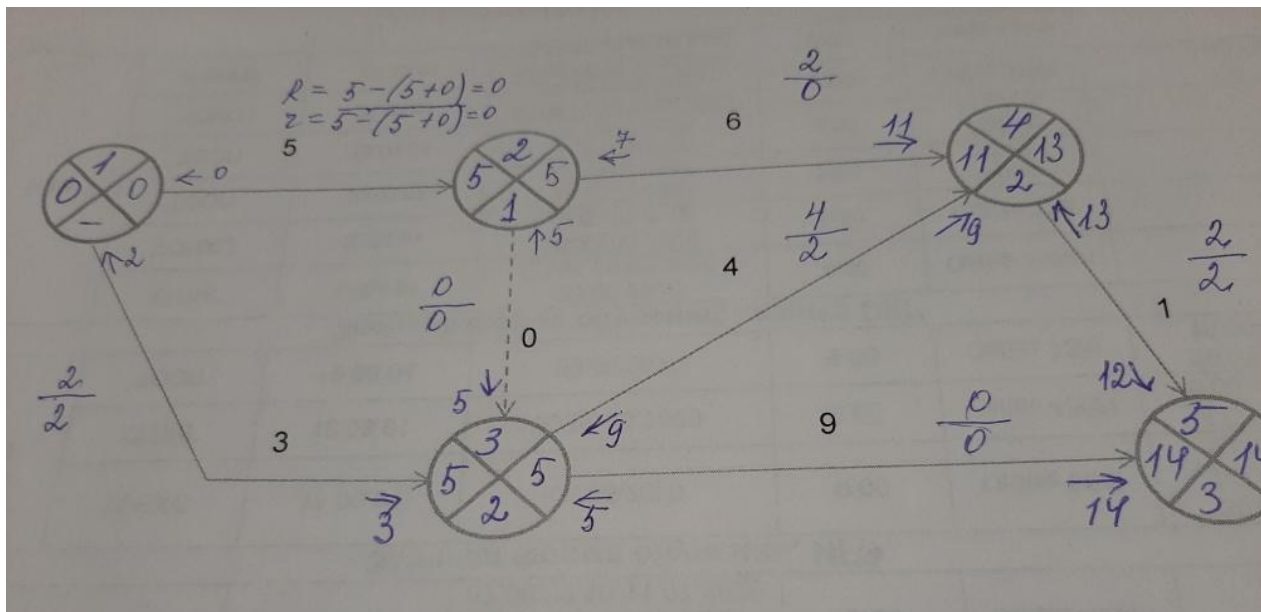 R = 5-(5+0)=0
r = 5-(5+0)=0
5
2
0
6
11
1
0 0
-
0
2
5 5
1
7
4
11 13
2
5
4
2
9
13
2
2
0
0
0
4
1
2
2
5
12
3
3
5 5
2
9
9
0
0
5
14 14
3
3
5
14
2